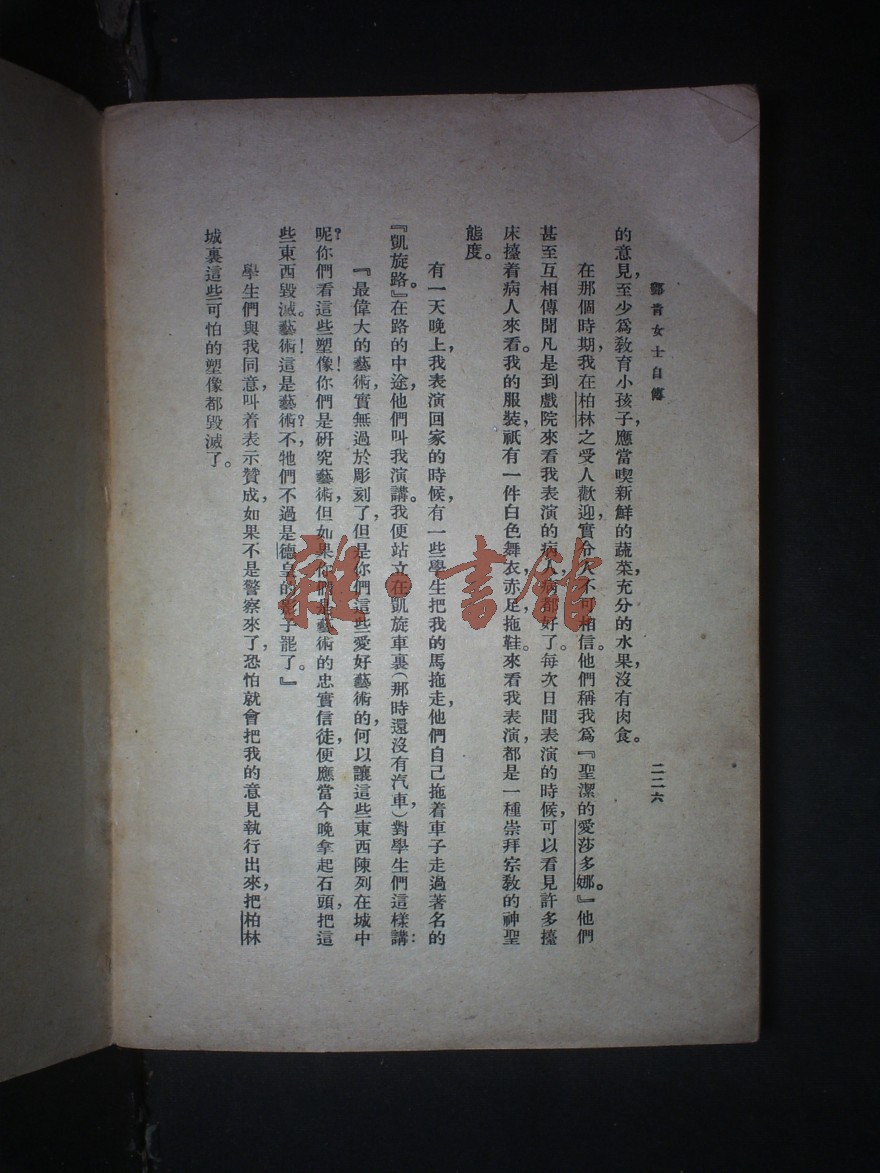 鄧肯女士自傳
二二六
的意見，至少爲敎育小孩子，應當喫新鮮的蔬菜，充分的水果，沒有肉食。
在那個時期，我在柏林之受人歡迎，實令人不可相信。他們稱我爲『聖潔的愛莎多娜。』他們
甚至互相傳聞凡是到戲院來看我表演的病人，病都好了。每次日間表演的時候，可以看見許多擡
床擡着病人來看。我的服裝，祇有一件白色舞衣，赤足，拖鞋。來看我表演，都是一種崇拜宗敎的神聖
態度。
有一天晚上，我表演回家的時候，有一些學生把我的馬拖走，他們自己拖着車子走過著名的
『凱旋路。』在路的中途，他們叫我演講。我便站立在凱旋車裏（那時還沒有汽車，）對學生們這樣講：
『最偉大的藝術，實無過於彫刻了，但是你們這些愛好藝術的，何以讓這些東西陳列在城中
呢？你們看這些塑像！你們是研究藝術，但如果你們是藝術的忠實信徒，便應當今晚拿起石頭，把這
些東西毀滅。藝術！這是藝術？不，牠們不過是德皇的影子罷了。』
學生們與我同意，叫着表示贊成，如果不是警察來了，恐怕就會把我的意見執行出來，把柏林
城裏這些可怕的塑像都毀滅了。
雜·書館